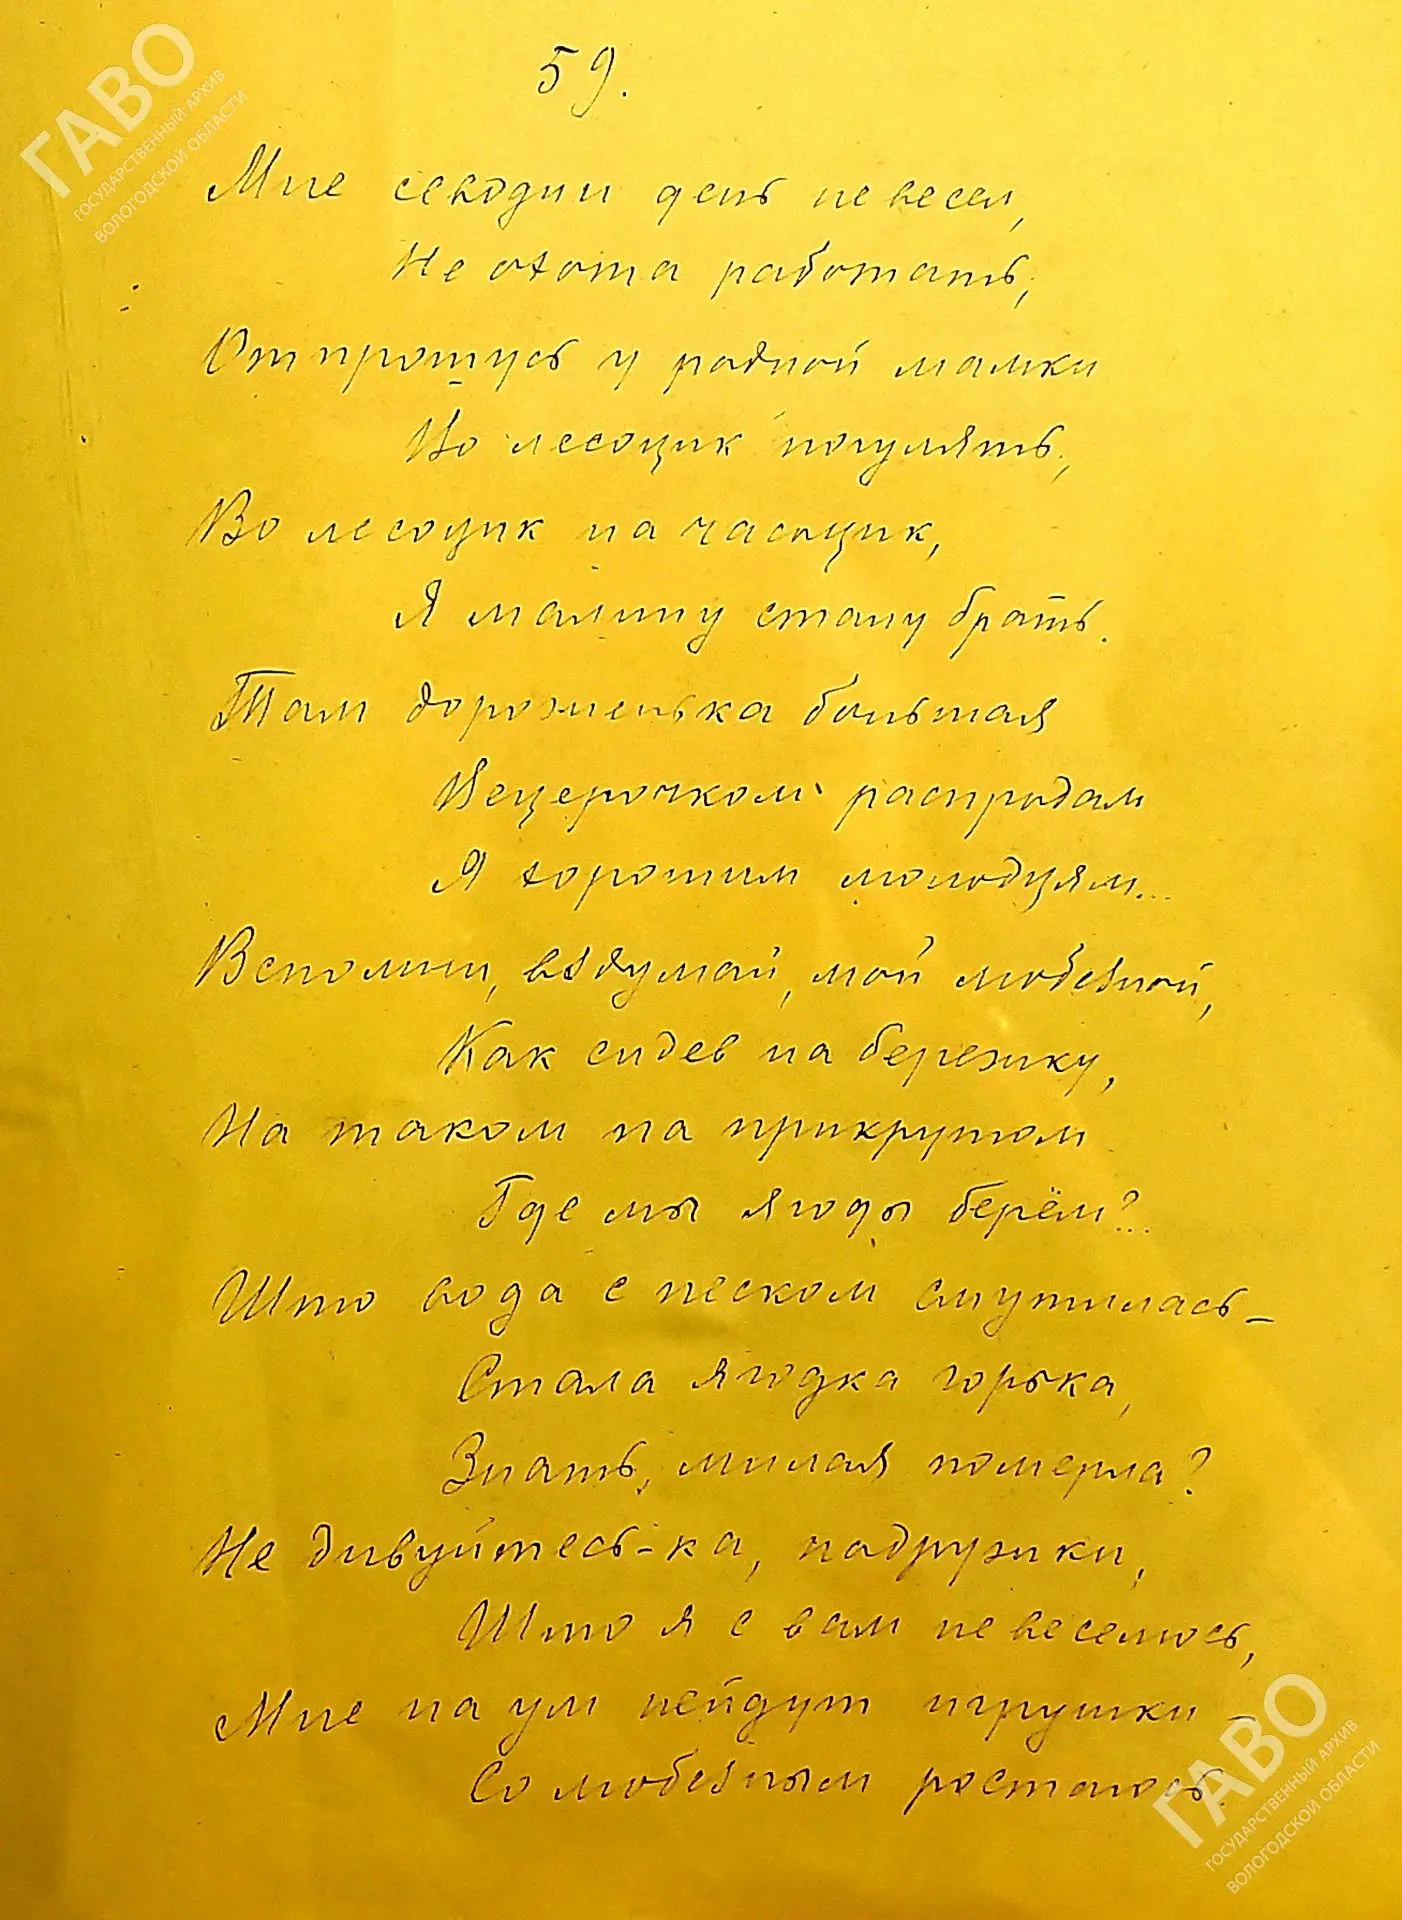 ГАВО
ГОСУДАРСТВЕННЫЙ АРХИВ
ВОЛОГОДСКОЙ ОБЛАСТИ
59.
Мне севодни день не весел,
Не охота работать,
Отпрошусь у родной мамки
Во лесоцик погулять,
Во лесоцик на часоцик,
Я малину стану брать.
Там дороженька большая
Вецерочком распродам
Я хорошим молодцям...
Вспомни, вздумай, мой любезной,
Как сидев на бережку,
На таком на прикрутом
Где мы ягоды берём?..
Што вода с песком смутилась –
Стала ягодка горька,
Знать, милая померла?
Не дивуйтесь-ка, подружки,
Што я с вам не веселюсь,
Мне на ум нейдут игрушки –
Со любезным ростаюсь.
ГАВО
ГОСУДАРСТВЕННЫЙ АРХИВ
ВОЛОГОДСКОЙ ОБЛАСТИ